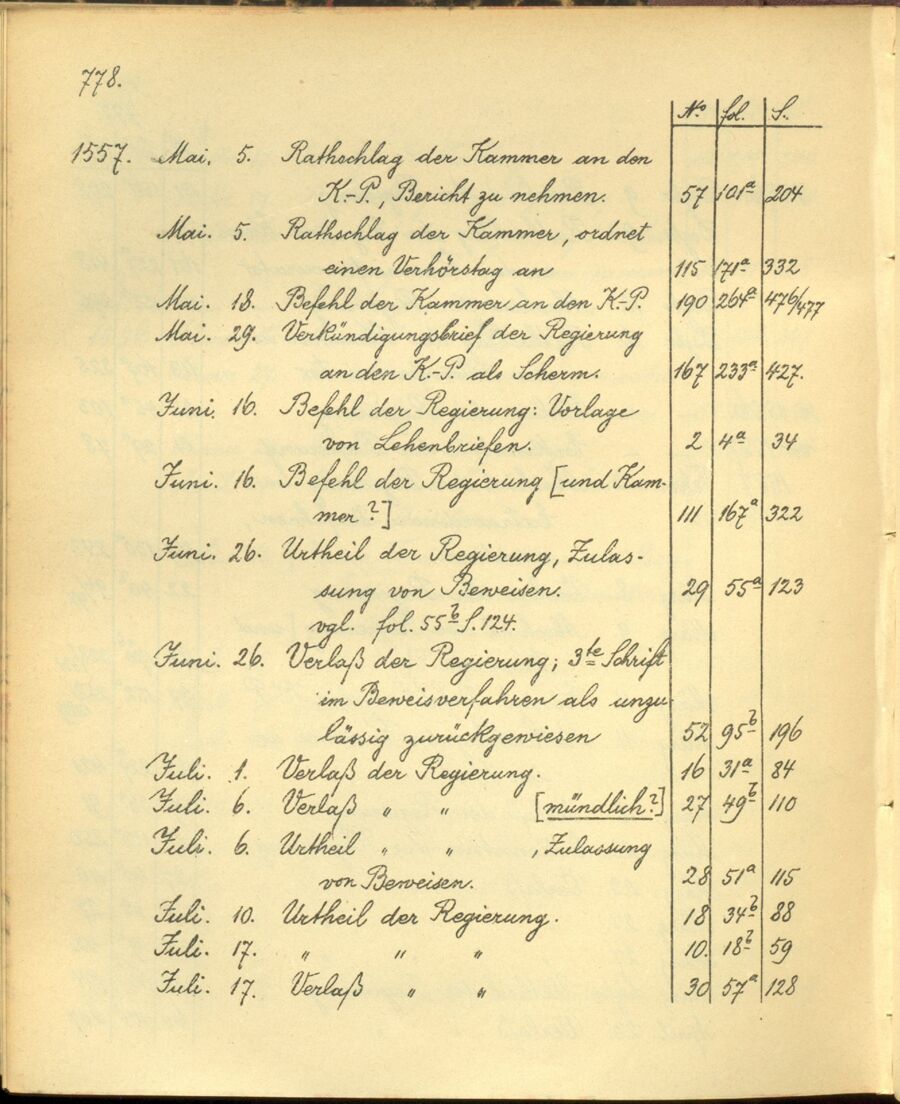 778.
No fol. S.
1557. Mai. 5. Rathschlag der Kammer an den
K.-P., Bericht zu nehmen. 57 101a 204
Mai. 5. Rathschlag der Kammer, ordnet
einen Verhörstag an 115 171a 332
Mai. 18. Befehl der Kammer an den K.-P. 190 264a 476/477
Mai. 29. Verkündigungsbrief der Regierung
an den K.-P. als Scherm. 167 233a 427.
Juni. 16. Befehl der Regierung: Vorlage
von Lehenbriefen. 2 4a 34
Juni. 16. Befehl der Regierung [und Kam-
mer?] 111 167a 322
Juni. 26. Urtheil der Regierung, Zulas-
sung von Beweisen. 29 55a 123
vgl. fol. 55b S. 124.
Juni. 26. Verlaß der Regierung; 3te Schrift
im Beweisverfahren als unzu-
lässig zurückgewiesen 52 95b 196
Juli. 1. Verlaß der Regierung. 16 31a 84
Juli. 6. Verlaß " " [mündlich?] 27 49b 110
Juli. 6. Urtheil " " , Zulassung
von Beweisen. 28 51a 115
Juli. 10. Urtheil der Regierung. 18 34b 88
Juli. 17. " " " 10. 18b 59
Juli. 17. Verlaß " " 30 57a 128